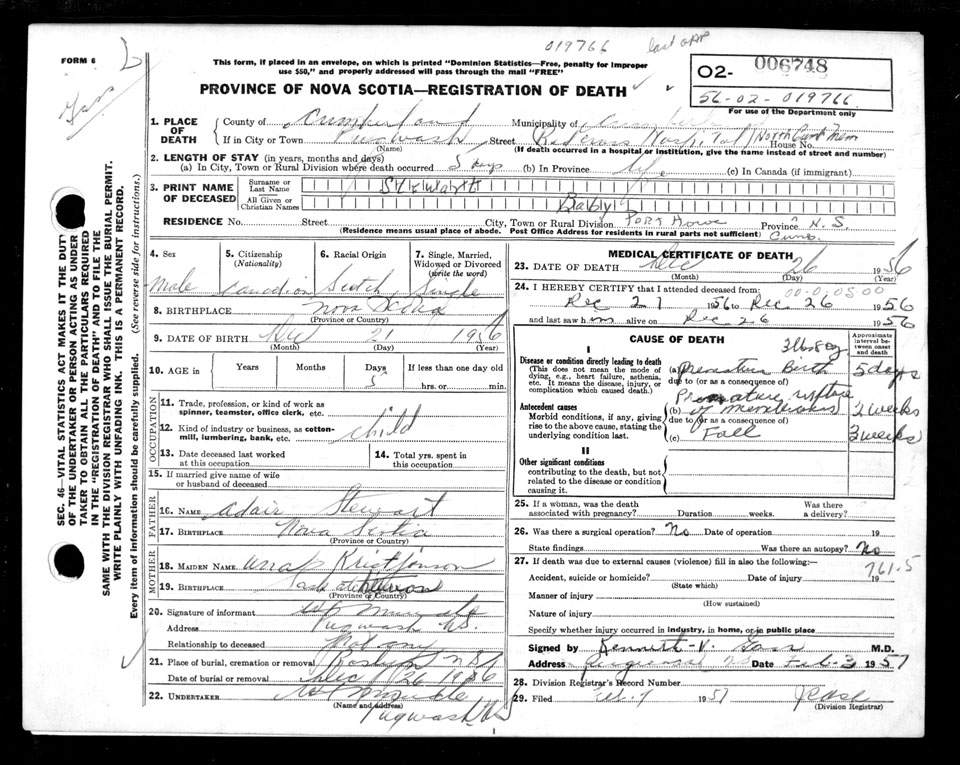 019766
FORM 6
This form, if placed in an envelope, on which is printed "Dominion Statistics—Free, penalty for improper
use $50," and properly addressed will pass through the mail "FREE"
02- 006748
56-02-019766
For use of the Department only
PROVINCE OF NOVA SCOTIA—REGISTRATION OF DEATH
1. PLACE OF DEATH
County of Cumberland Municipality of
If in City or Town Pugwash Street Hospital North Cumb Mem House No.
(Name) (If death occurred in a hospital or institution, give the name instead of street and number)
2. LENGTH OF STAY (in years, months and days)
(a) In City, Town or Rural Division where death occurred 5 days (b) In Province life (c) In Canada (if immigrant)
3. PRINT NAME OF DECEASED
Surname or Last Name
All Given or Christian Names Baby
RESIDENCE No. Street City, Town or Rural Division Port Howe Province N.S
(Residence means usual place of abode. Post Office Address for residents in rural parts not sufficient) Cumb.
4. Sex
5. Citizenship
(Nationality)
6. Racial Origin
7. Single, Married,
Widowed or Divorced
(write the word)
Male Canadian Scotch Single
8. BIRTHPLACE Nova Scotia
(Province or Country)
9. DATE OF BIRTH Dec 21 1956
(Month) (Day) (Year)
10. AGE in
Years Months Days If less than one day old
5 hrs. or min.
OCCUPATION
11. Trade, profession, or kind of work as
spinner, teamster, office clerk, etc.
12. Kind of industry or business, as cotton-
mill, lumbering, bank, etc. child
13. Date deceased last worked
at this occupation
14. Total yrs. spent in
this occupation
15. If married give name of wife
or husband of deceased
FATHER
16. NAME Adair Stewart
17. BIRTHPLACE Nova Scotia
(Province or Country)
MOTHER
18. MAIDEN NAME
19. BIRTHPLACE
(Province or Country)
20. Signature of informant
Address Pugwash N.S.
Relationship to deceased
21. Place of burial, cremation or removal
Date of burial or removal Dec 26 1956
22. UNDERTAKER
(Name and address)
Pugwash
MEDICAL CERTIFICATE OF DEATH
23. DATE OF DEATH Dec 26 1956
(Month) (Day)
24. I HEREBY CERTIFY that I attended deceased from:
Dec 21 1956 to Dec 26 1956
and last saw him alive on Dec 26 1956
CAUSE OF DEATH
Approximate
interval be-
tween onset
and death
I
Disease or condition directly leading to death
(This does not mean the mode of
dying, e.g., heart failure, asthenia,
etc. It means the disease, injury, or
complication which caused death.)
(a) Premature Birth 5 days
due to (or as a consequence of)
Premature rupture
(b) of membranes 2 weeks
due to (or as a consequence of)
(c) Fall 3 weeks
Antecedent causes
Morbid conditions, if any, giving
rise to the above cause, stating the
underlying condition last.
II
Other significant conditions
contributing to the death, but not
related to the disease or condition
causing it.
25. If a woman, was the death
associated with pregnancy? Duration weeks. Was there
a delivery?
26. Was there a surgical operation? No Date of operation 19
State findings Was there an autopsy? No
27. If death was due to external causes (violence) fill in also the following:—
761.5
Accident, suicide or homicide? Date of injury 19
(State which)
Manner of injury
(How sustained)
Nature of injury
Specify whether injury occurred in industry, in home, or in public place
Signed by Kenneth V. M.D.
Address Date Feb. 3 1957
28. Division Registrar's Record Number
29. Filed 1957
(Division Registrar)
SEC. 46—VITAL STATISTICS ACT MAKES IT THE DUTY
OF THE UNDERTAKER OR PERSON ACTING AS UNDER
TAKER TO OBTAIN ALL THE PARTICULARS REQUIRED
IN THE "REGISTRATION OF DEATH" AND TO FILE THE
SAME WITH THE DIVISION REGISTRAR WHO SHALL ISSUE THE BURIAL PERMIT.
WRITE PLAINLY WITH UNFADING INK. THIS IS A PERMANENT RECORD.
Every item of information should be carefully supplied. (See reverse side for instructions.)